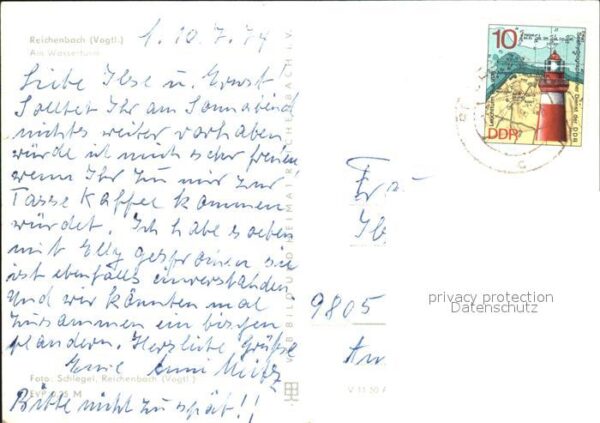 Reichenbach (Vogtl.)
Am Wasserturm
10.7.74
Liebe Ilse u. Ernst
Solltet Ihr am Sonnabend
nichts weiter vorhaben
würde ich mich sehr freuen
wenn Ihr zu mir zur
Tasse Kaffee kommen
würdet. Ich habe soeben
mit Elly gesprochen sie
ist ebenfalls einverstanden
Und wir könnten mal
zusammen ein bischen
plaudern. Herzliche Grüße
Eure Anni
Foto: Schlegel, Reichenbach (Vogtl.)
EVP 0,25 M
Bitte nicht zu spät!!
VEB BILD UND HEIMAT REICHENBACH i. V.
V 11 50 A
10
DDR
Frau
9805
privacy protection
Datenschutz